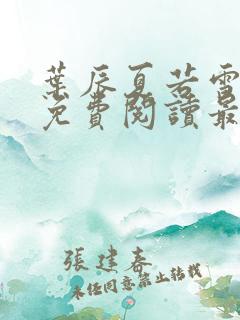 葉辰夏若雪
免費閱讀最
張建春
未經同意禁止轉載